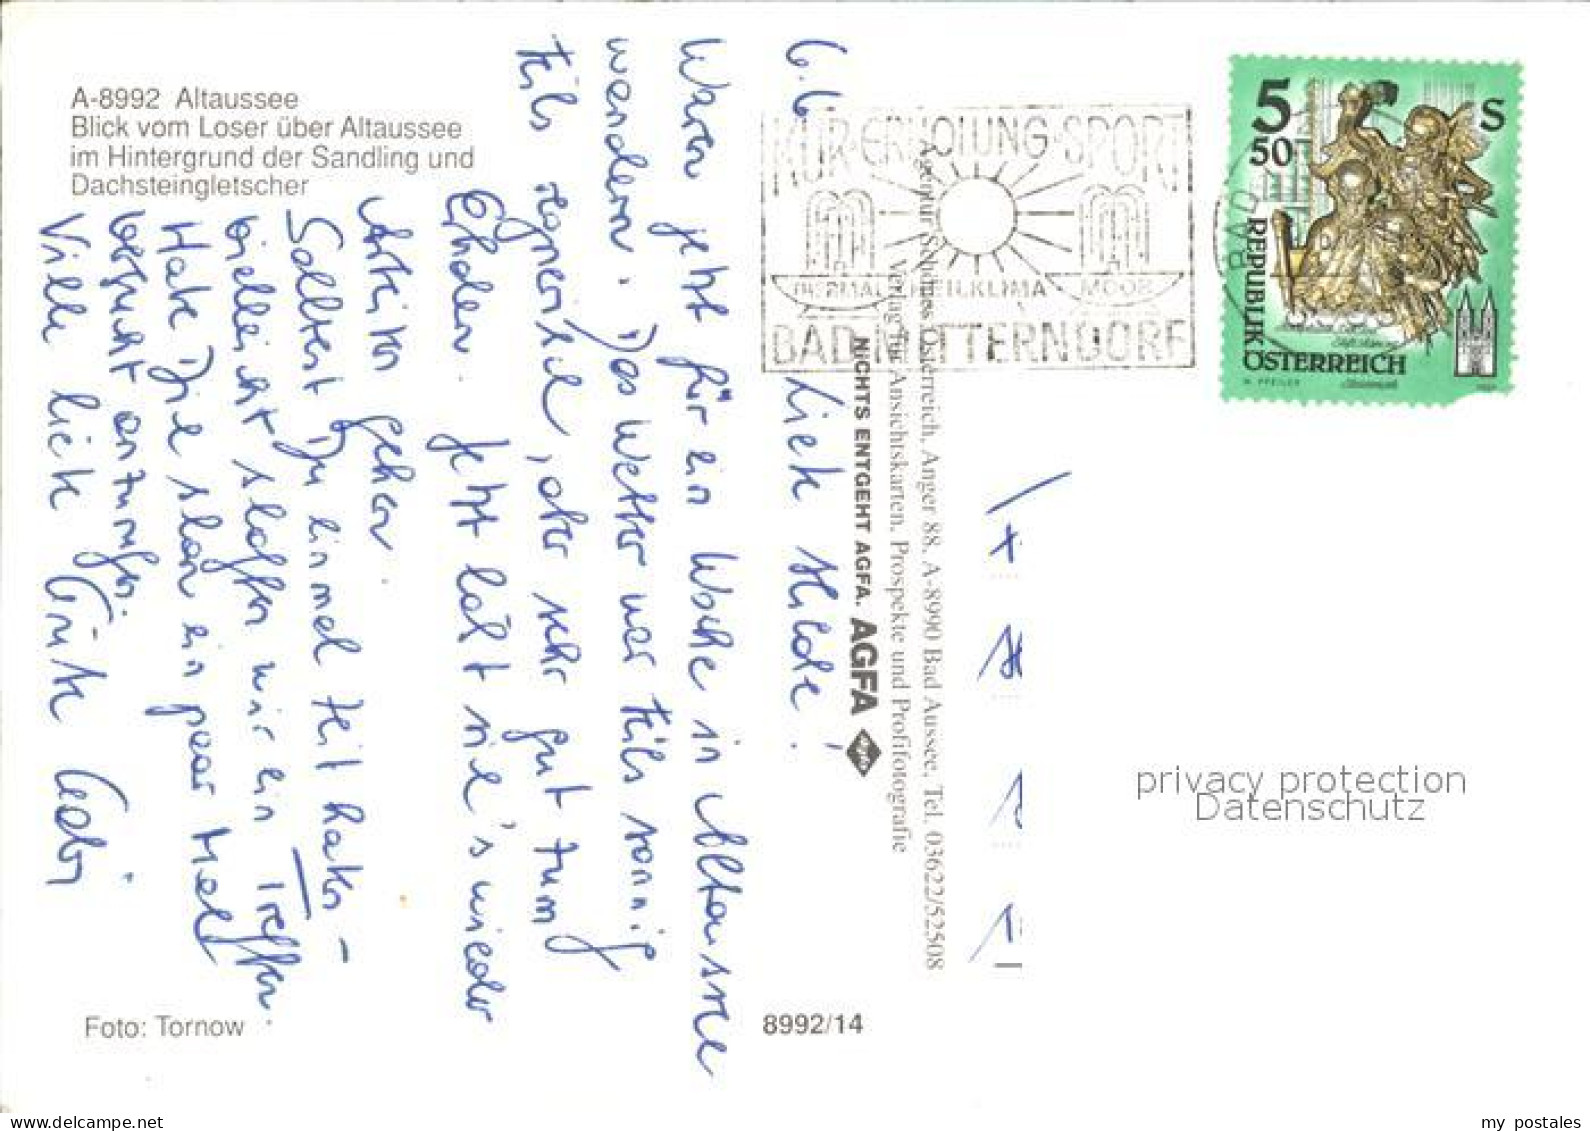 A-8992 Altaussee
Blick vom Loser über Altaussee
im Hintergrund der Sandling und
Dachsteingletscher
6.6
Liebe Hilde!
Waren jetzt für ein Woche in Altaussee
wandern. Das Wetter war teils sonnig
teils regnerisch, aber sehr gut zum
Jetzt läßt sie's wieder
Arbeiten gehen.
Solltest Du einmal Zeit haben –
vielleicht schaffen wir ein Treffen.
Habe Sie schon ein paar Mal
versucht anzurufen.
Viele liebe Grüße Gabi
Foto: Tornow
8992/14
KUR·ERHOLUNG·SPORT
THERMAL HEILKLIMA MOOR
BAD MITTERNDORF
Agentur Schönes Österreich, Anger 88, A-8990 Bad Aussee, Tel. 03622/52508
Verlag für Ansichtskarten, Prospekte und Profifotografie
NICHTS ENTGEHT AGFA. AGFA
BAD
5
50
S
REPUBLIK
ÖSTERREICH
privacy protection
Datenschutz
my postales